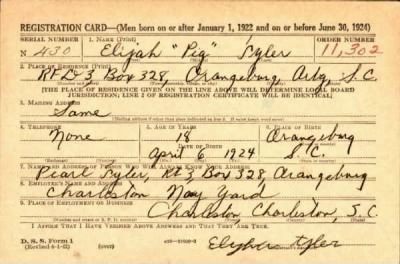 REGISTRATION CARD—(Men born on or after January 1, 1922 and on or before June 30, 1924)
SERIAL NUMBER 1. NAME (Print) ORDER NUMBER
N 430 Elijah "Pig" Tyler 11,302
2. PLACE OF RESIDENCE (Print)
RFD 3 Box 328, Orangeburg Orbg S.C.
(THE PLACE OF RESIDENCE GIVEN ON THE LINE ABOVE WILL DETERMINE LOCAL BOARD
JURISDICTION; LINE 2 OF REGISTRATION CERTIFICATE WILL BE IDENTICAL)
3. MAILING ADDRESS
Same
4. TELEPHONE 5. AGE IN YEARS 6. PLACE OF BIRTH
None 18 Orangeburg
DATE OF BIRTH
April 6 1924 S.C.
7. NAME AND ADDRESS OF PERSON WHO WILL ALWAYS KNOW YOUR ADDRESS
Pearl Tyler, Rt 3 Box 328, Orangeburg
8. EMPLOYER'S NAME AND ADDRESS
Charleston Navy Yard
9. PLACE OF EMPLOYMENT OR BUSINESS
Charleston Charleston, S.C.
I AFFIRM THAT I HAVE VERIFIED ABOVE ANSWERS AND THAT THEY ARE TRUE.
D. S. S. Form 1
(Revised 6-1-42) (over) Tyler